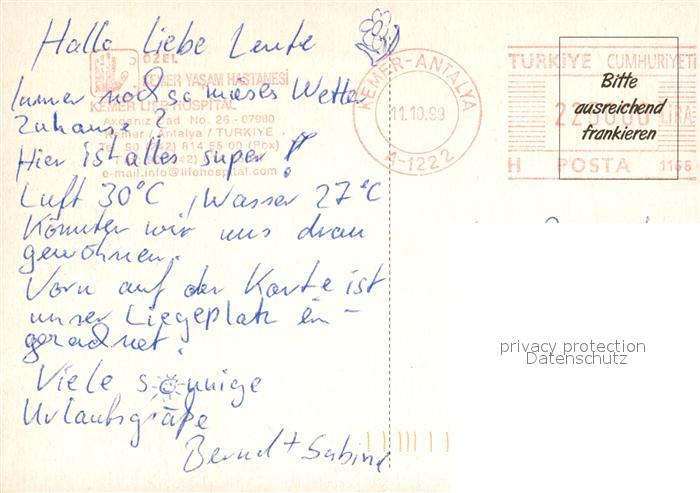 Hallo liebe Leute
ÖZEL
KEMER YAŞAM HASTANESİ
KEMER LIFE HOSPITAL
Akdeniz Cad No. 25 - 07980
Kemer / Antalya / TURKIYE
Tel 90 (242) 814 55 00 (Pbx)
e-mail.info@lifehospital.com
Immer noch so mieses Wetter
zuhause?
Hier ist alles super!
Luft 30°C, Wasser 27°C
Könnten wir uns dran
gewöhnen.
Vorn auf der Karte ist
unser Liegeplatz ein-
gerachnet!
Viele sonnige
Urlaubsgrüße
Bernd + Sabine
KEMER-ANTALYA
11.10.99
A-1222
TÜRKİYE CUMHURİYETİ
LİRA
H POSTA 1166
Bitte
ausreichend
frankieren
privacy protection
Datenschutz